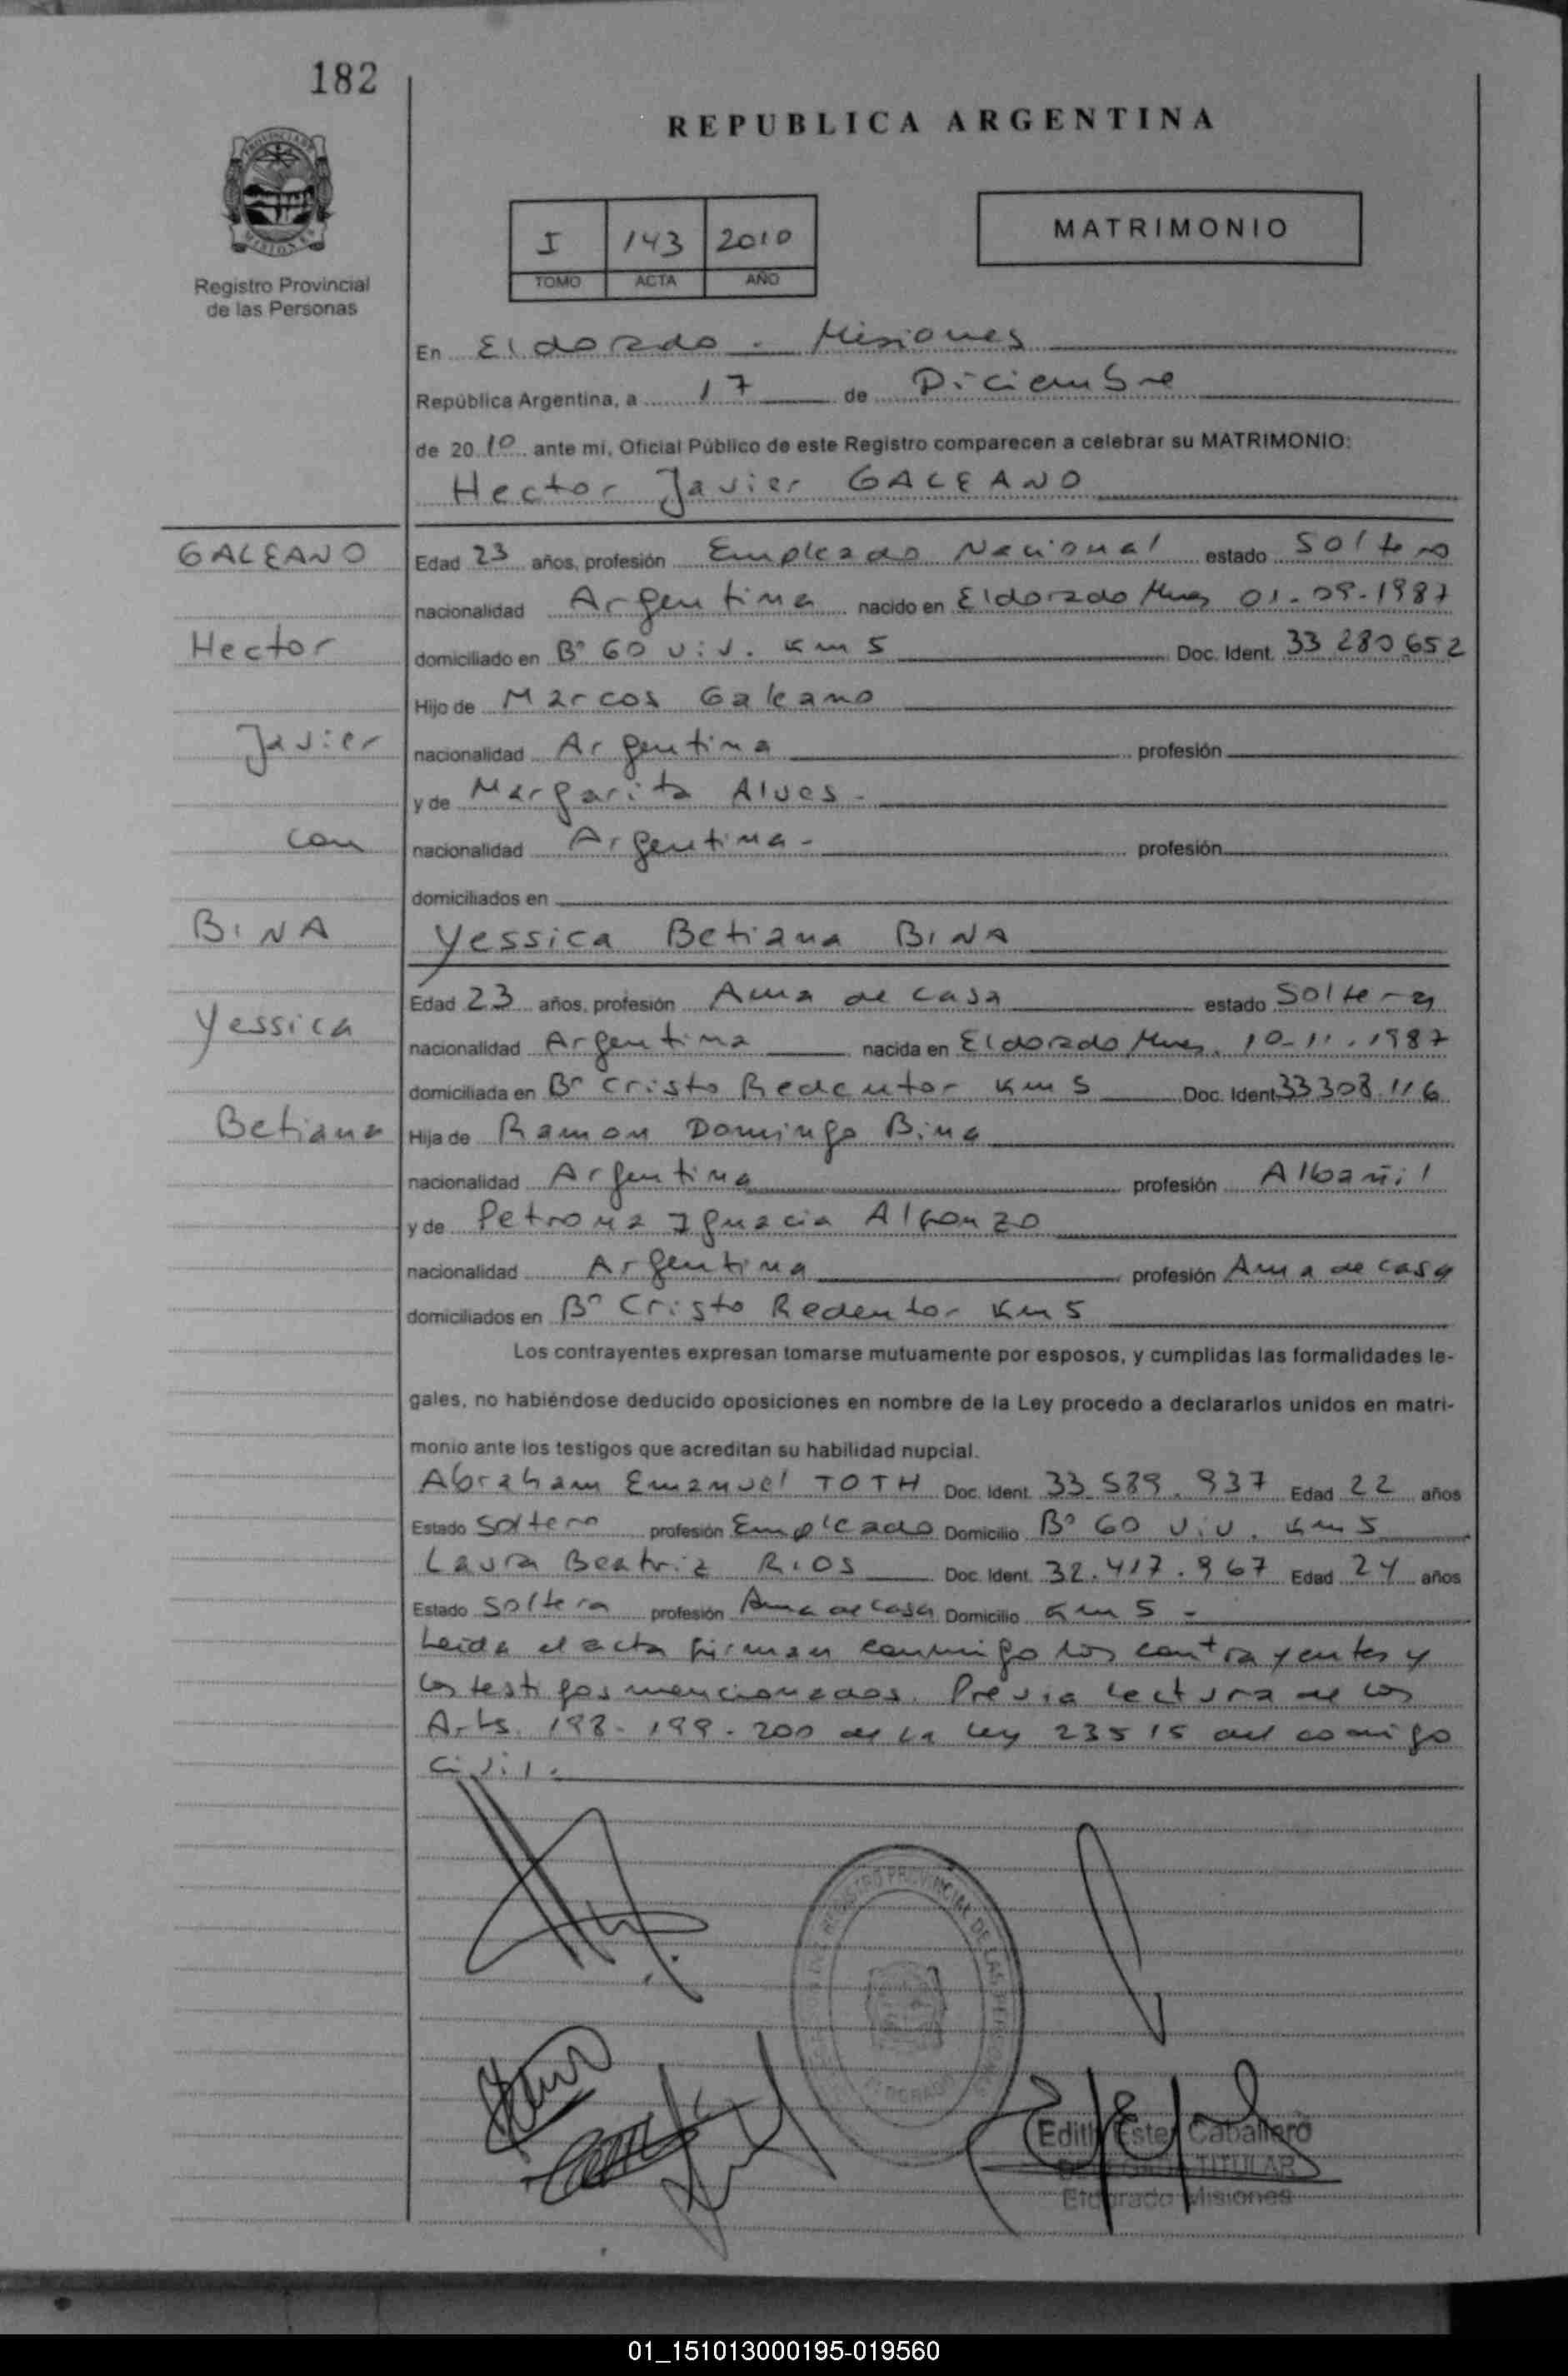 182
REPUBLICA ARGENTINA
PROVINCIA DE MISIONES
Registro Provincial
de las Personas
I 143 2010
TOMO ACTA AÑO
MATRIMONIO
En Eldorado. Misiones
República Argentina, a 17 de Diciembre
de 2010 ante mi, Oficial Público de este Registro comparecen a celebrar su MATRIMONIO:
Hector Javier GALEANO
GALEANO
Hector
Javier
con
BINA
Yessica
Betiana
Edad 23 años, profesión Empleado Nacional estado Soltero
nacionalidad Argentina nacido en Eldorado Mnes 01-09-1987
domiciliado en Bº 60 viv. Km 5 Doc. Ident. 33 280 652
Hijo de Marcos Galeano
nacionalidad Argentina profesión
y de Margarita Alves -
nacionalidad Argentina - profesión
domiciliados en
Yessica Betiana BINA
Edad 23 años, profesión Ama de casa estado Soltera
nacionalidad Argentina nacida en Eldorado Mnes. 10-11-1987
domiciliada en Bº Cristo Redentor Km 5 Doc. Ident 33 308.116
Hija de Ramon Domingo Bina
nacionalidad Argentina profesión Albañil
y de Petrona Ignacia Alfonzo
nacionalidad Argentina profesión Ama de casa
domiciliados en Bº Cristo Redentor Km 5
Los contrayentes expresan tomarse mutuamente por esposos, y cumplidas las formalidades le-
gales, no habiéndose deducido oposiciones en nombre de la Ley procedo a declararlos unidos en matri-
monio ante los testigos que acreditan su habilidad nupcial.
Abraham Emanuel TOTH Doc. Ident. 33.589.937 Edad 22 años
Estado Soltero profesión Empleado Domicilio Bº 60 viv. Km 5
Laura Beatriz RIOS Doc. Ident. 32.417.967 Edad 24 años
Estado Soltera profesión Ama de Casa Domicilio Km 5 -
Leida el acta firman conmigo los contrayentes y
los testigos mencionados. Previa lectura de los
Arts. 198-199-200 de la ley 23515 del codigo
Civil.
REGISTRO PROVINCIAL DE LAS PERSONAS
ELDORADO
Edith Ester Caballero
DELEGADA TITULAR
Eldorado Misiones
01_151013000195-019560